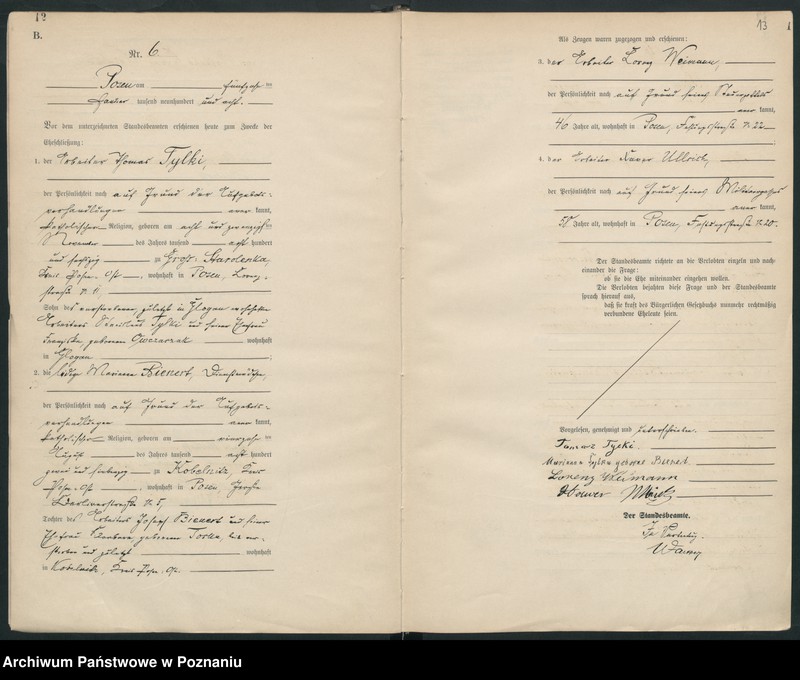 12
B.
Nr. 6.
Posen am fünfzehnten
Januar tausend neunhundert und acht.
Vor dem unterzeichneten Standesbeamten erschienen heute zum Zwecke der
Eheschließung:
1. der Arbeiter Thomas Tylki,
der Persönlichkeit nach auf Grund der Aufgebots-
verhandlungen anerkannt,
katholischer Religion, geboren am acht und zwanzigsten
November des Jahres tausend acht hundert
und zu Groß Starolenka,
Kreis Posen Ost, wohnhaft in Posen,
straße N.
Sohn des verstorbenen, zuletzt in Glogau wohnhaften
Arbeiters Stanislaus Tylki und seiner Ehefrau
geborenen Owczarzak wohnhaft
in Glogau
2. die ledige Marianna Bienert, Dienstmädchen,
der Persönlichkeit nach auf Grund der Aufgebots-
verhandlungen anerkannt,
katholischer Religion, geboren am vierzehnten
August des Jahres tausend acht hundert
zwei und siebenzig zu Kobelnitz, Kreis
Posen-Ost, wohnhaft in Posen,
straße N. 5,
Tochter des Arbeiters Joseph Bienert und seiner
Ehefrau Barbara geborenen ver-
storben und zuletzt wohnhaft
in Kobelnitz, Kreis Posen-Ost.
13
Als Zeugen waren zugezogen und erschienen:
3. der Arbeiter Lorenz Weimann,
der Persönlichkeit nach auf Grund seines
anerkannt,
46 Jahre alt, wohnhaft in Posen,
4. der Arbeiter Xaver Ullrich,
der Persönlichkeit nach auf Grund seines Militärpasses
anerkannt,
50 Jahre alt, wohnhaft in Posen,
Der Standesbeamte richtete an die Verlobten einzeln und nach-
einander die Frage:
ob sie die Ehe miteinander eingehen wollen.
Die Verlobten bejahten diese Frage und der Standesbeamte
sprach hierauf aus,
daß sie kraft des Bürgerlichen Gesetzbuchs nunmehr rechtmäßig
verbundene Eheleute seien.
Vorgelesen, genehmigt und unterschrieben.
Tomasz Tylki
Marianna Tylka geborene Bienert
Lorenz Weimann
Xawer Ullrich
Der Standesbeamte.
In Vertretung.
Archiwum Państwowe w Poznaniu